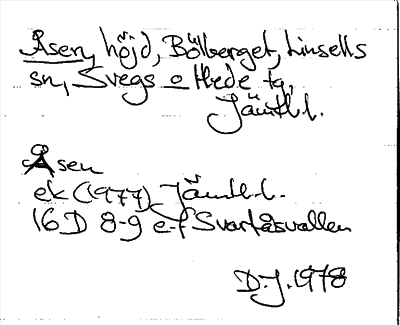 Åsen, höjd, Bölberget, Linsells
sn, Svegs o Hede tg,
Jämtl.l.
Åsen
ek (1977) Jämtl.l.
16D 8-9 e-f Svartåsvallen
D.J. 1978